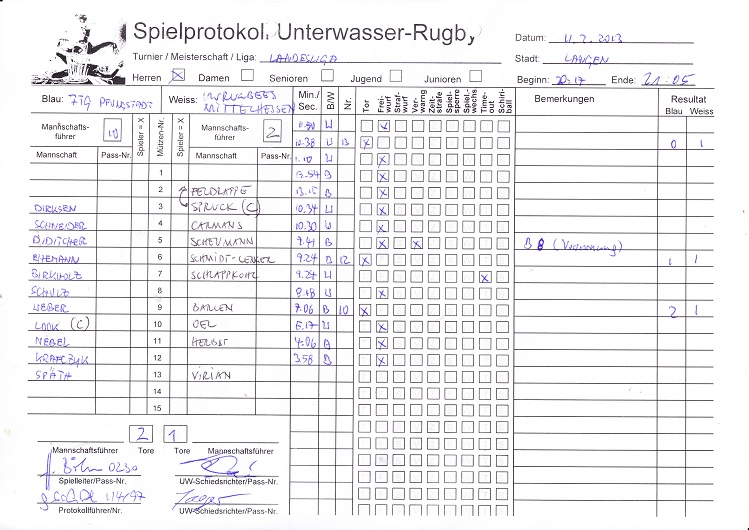 Spielprotokoll, Unterwasser-Rugby
Datum: 11.2.2013
Turnier / Meisterschaft / Liga: LANDESLIGA
Stadt: LANGEN
Herren X Damen Senioren Jugend Junioren
Beginn: 20:17 Ende: 21:05
Blau: PFUNGSTADT Weiss: MITTELHESSEN
Min./Sec. B/W Nr. Tor Freiwurf Strafwurf Verwarng Zeitstrafe Spielsperre Spielwechs Timeout Schiriball
Bemerkungen
Resultat
Blau Weiss
Mannschaftsführer 10 Spieler = X Mützen-Nr. Spieler = X Mannschaftsführer 2
Mannschaft Pass-Nr. Mannschaft Pass-Nr.
10.38 W 13 X 0 1
1
2 FELDRAPPE 13.15 B X
DIRKSEN 3 SPRUCK (C) 10.34 W X
SCHNEIDER 4 CARMANS 10.30 W X
5 SCHEUMANN 9.41 B X X B 8 (Verwarnung)
6 SCHMIDT-LENKER 9.24 B 12 X 1 1
BIRKHOLZ 7 SCHLAPPKOHL 9.24 W X
SCHULZ 8 8.18 W X
WEBER 9 BALLEN 7.06 B 10 X 2 1
LOOK (C) 10 OEL 6.17 W X
NEBEL 11 HERBST 4.06 X
KRAFCZYK 12 3.58 B X
SPÄTH 13 VIRIAN
14
15
2 1
Mannschaftsführer Tore Tore Mannschaftsführer
Spielleiter/Pass-Nr. UW-Schiedsrichter/Pass-Nr.
Protokollführer/Nr. UW-Schiedsrichter/Pass-Nr.